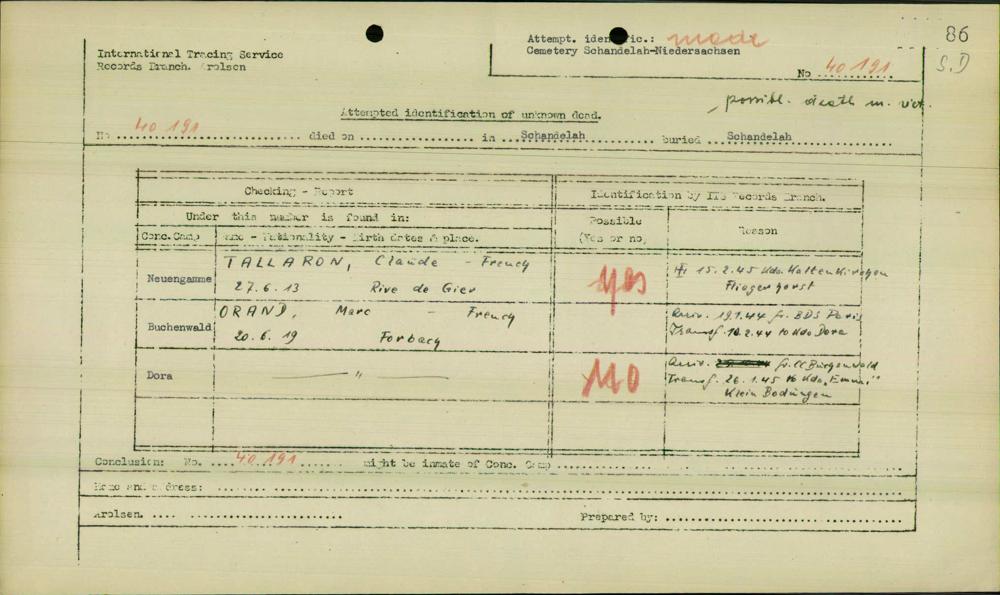 International Tracing Service
Records Branch. Arolsen
Attempt. identific.: made
Cemetery Schandelah-Niedersachsen
86
S.D
No 40 191
possibl. death m. vict.
Attempted identification of unknown dead.
No 40 191 died on in Schandelah buried Schandelah
Checking - Report
Identification by ITS Records Branch.
Under this number is found in:
Possible
(Yes or no)
Reason
Conc.Camp
Name - Nationality - Birth dates & place.
Neuengamme
TALLARON, Claude - French
27.6.13 Rive de Gier
yes
15.2.45 Kdo. Kaltenkirchen
Fliegerhorst
Buchenwald
ORAND, Marc - French
20.6.19 Forbach
Arriv. 19.1.44 fr. BDS Paris
Transf. 10.2.44 to Kdo Dora
Dora
— " —
no
Arriv. fr. CC Buchenwald
Transf. 26.1.45 to Kdo. "Emmi"
Klein Bodungen
Conclusion: No. 40 191 might be inmate of Conc. Camp
Name and address:
Arolsen.
Prepared by: